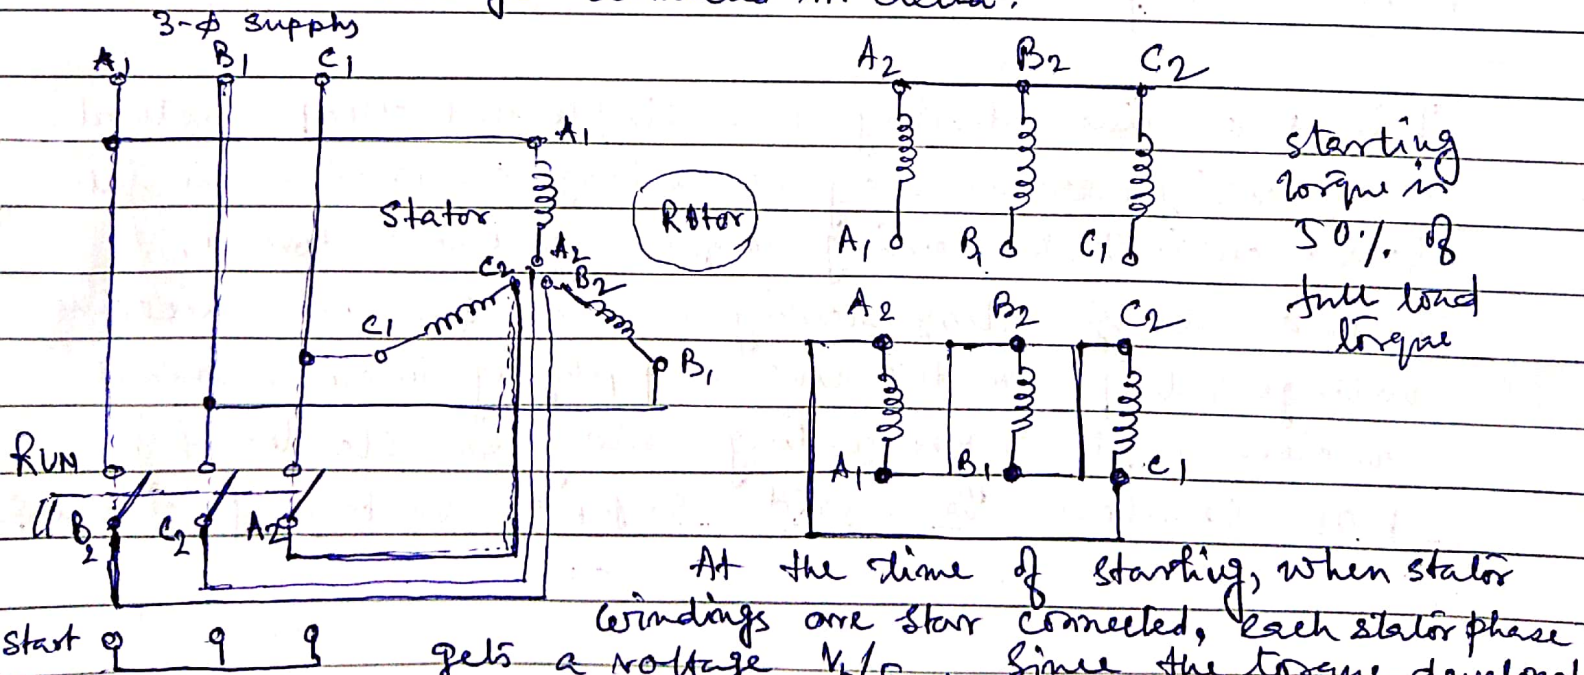 3-φ Supply
A1 B1 C1
A1
Stator
Rotor
A2
C2 B2
C1
B1
RUN
B2 C2 A2
Start
A2 B2 C2
A1 B1 C1
A2 B2 C2
A1 B1 C1
starting
torque is
50% of
full load
torque
At the time of starting, when stator
windings are star connected, each stator phase
gets a voltage Since the torque